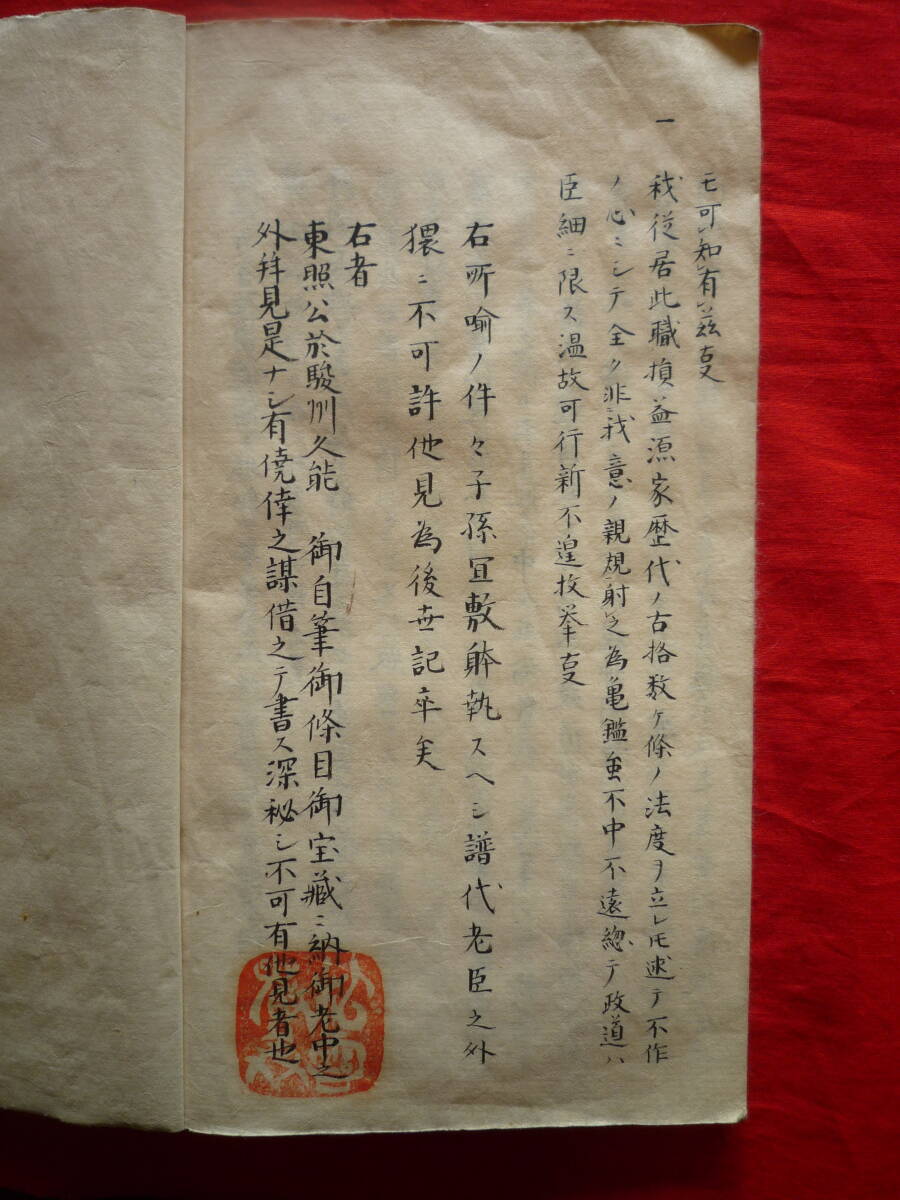 モ可知有茲叓
一
我従居此職損益源家歴代ノ古格数ケ條ノ法度ヲ立レ𪜈述テ不作
ノ心ニシテ全ク非我意ノ親規射之為亀鑑虽不中不遠総テ政道ハ
臣細ニ限ス温故可行新不遑枚挙叓
右所喩ノ件々子孫宜敷躰執スヘシ譜代老臣之外
猥ニ不可許他見為後世記卒矣
右者
東照公於駿州久能 御自筆御條目御宝蔵ニ納御老中之
外拜見是ナシ有僥倖之謀借之テ書ス深秘シ不可有他見者也